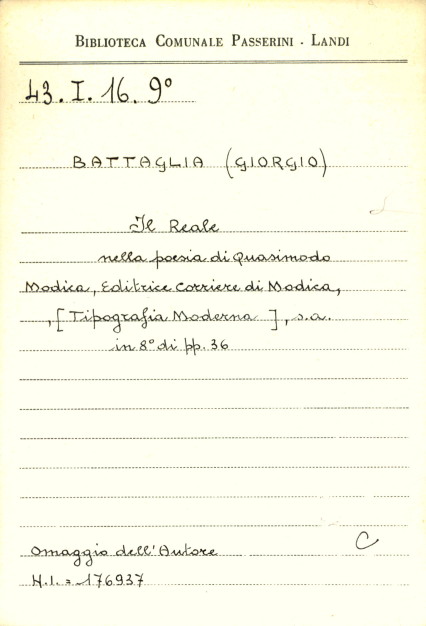 BIBLIOTECA COMUNALE PASSERINI - LANDI
43. I. 16. 9°
BATTAGLIA (GIORGIO)
Il Reale
nella poesia di Quasimodo
Modica, Editrice Corriere di Modica,
, [Tipografia Moderna], s.a.
in 8° di pp. 36
Omaggio dell'Autore
C
H.I. = 176937